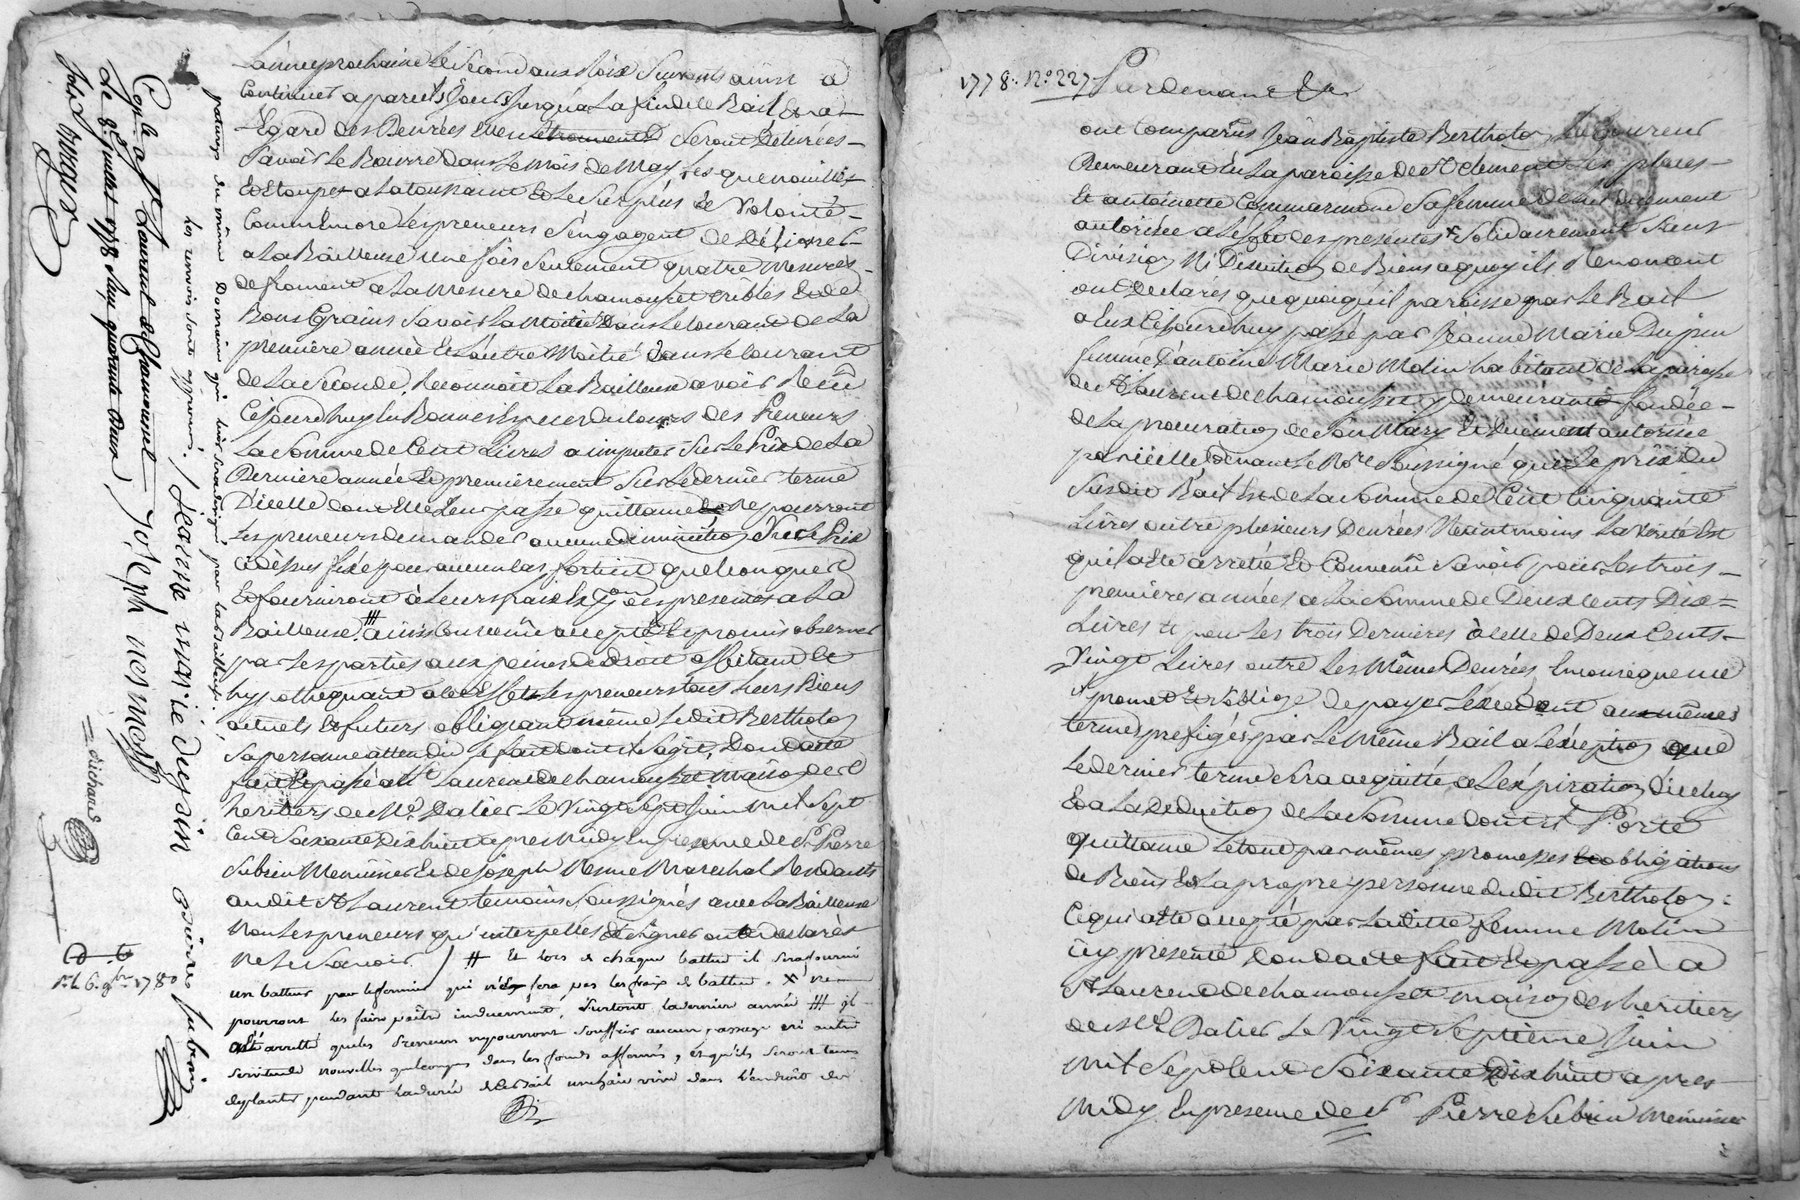 L'année prochaine Le Second aux Rois Suivants ainsi à
Continuer a pareils Jours Jusqu'a La fin de Le Bail Et a L
Egard des Denrées Elles Seront Delivrées
Savoir Le Beurre dans Le mois de May, Les quenouilles
Et Etoupes a La toussaint Et Le Surplus à Volonté
Comm'Encore Les preneurs S'engagent de Délivrer
a La Bailleuse Une fois Seulement quatre Mesures
de froment a La Mesure de chamousset cribles Et de
Bons Grains Savoir La Moitié Dans Le Courant de La
première année Et L'autre Moitié dans Le Courant
de La Seconde, Reconnoit La Bailleuse avoir Reçû
Cejourdhuy En Bonnes Especes du Cours des Preneurs
La Somme de Cent Livres a imputer Sur Le Prix de La
Derniere année Et premièrement Sur Le dernier terme
D'icelle dont Elle Leur passe quittance Ne pourront
Les preneurs demander aucune diminution Du Prix
ci dessus fixé pour aucun Cas fortuit quelconque
Et fourniront à Leurs frais Exp.on des presentes a La
Bailleuse # ainsi Convenu accepté Et promis observer
par Les parties aux peines de droit affectant Et
hypothequant a cet Effet Les preneurs tous Leurs Biens
actuels Et futurs obligeant même Ledit Bertholon
Sa personne attendu Le fait dont il S'agit, Dont acte
fait Et passé a St Laurent de chamousset maison des
heritiers de Me. Dalier Le Vingt Sept Juin mil Sept
Cent Soixante Dix huit apres Midy En presence de Sr. Pierre
Subrin Menuisier Et de Joseph Nesme Marechal Residants
audit St Laurent temoins Soussignés avec La Bailleuse
Non Les preneurs qu'interpellés de Signer ont Declarés
Ne Le Savoir / # Et lors de chaque battue il Sera fourni
un batteur par le fermier qui
pourront les faire paître induement, Surtout la derniere année # il
a été arretté que les Preneurs ne pourront Souffrir aucun passage ni autre
Servitude nouvelles quelconques dans les fonds affermés, et qu'ils Seront tenus
de planter pendant la durée du Bail une haie vive dans l'endroit du
paturage du même Domaine qui leur Sera designé par la Bailleuse.
les renvois Sont approuvés. /
Jeanne marie dupin
pierre Subrin
Joseph nesme
Conlé a St Laurent de Chamousset
Le 8e. juillet 1778
1778. No. 227 Pardevant &a
ont Comparus Jean Baptiste Bertholon Laboureur
Demeurant En La paroisse de St Clement Les places
Et antoinette Commarmond Sa femme de lui Duement
autorisée a L'effet des presentes Solidairement Sans
Division Ni Discution de Biens a quoy ils Renoncent
ont Declarés que quoiqu'il paroisse par Le Bail
a Eux Cejourdhuy passé par Jeanne Marie Dupin
femme d'antoine Marie Molin habitant de La paroisse
de St Laurent de chamousset y demeurante fondée
de La procuration de Son Mary Et Duement autorisée
par icelle, devant Le No.re Soussigné que Le prix Du
Susdit Bail Est de La Somme de Cent Cinquante
Livres outre plusieurs Denrées Neantmoins La Verité Est
qu'il a Eté arretté Et Convenû Savoir pour Les trois
premieres années a La Somme de Deux Cents Dix
Livres Et pour Les trois Dernieres à celle de Deux Cents
Vingt Livres outre Les Même Denrées En Consequence
promet Et S'oblige de payer L'excedent aux mêmes
termes prefigés par Le Même Bail a L'exception que
Le dernier terme Sera acquitté a L'expiration d'icelluy
Et a La Deduction de La Somme dont il Porte
quittance Le tout par mêmes promesses obligations
de Biens Et La propre personne dudit Bertholon
Ce qui a Eté accepté par Laditte femme Molin
icy presente Dont acte fait Et passé à
St Laurent de chamousset maison des heritiers
de Me. Dalier Le Vingt Septième Juin
Mil Sept Cent Soixante Dix huit apres
Midy En presence de Sr. Pierre Subrin Menuisier